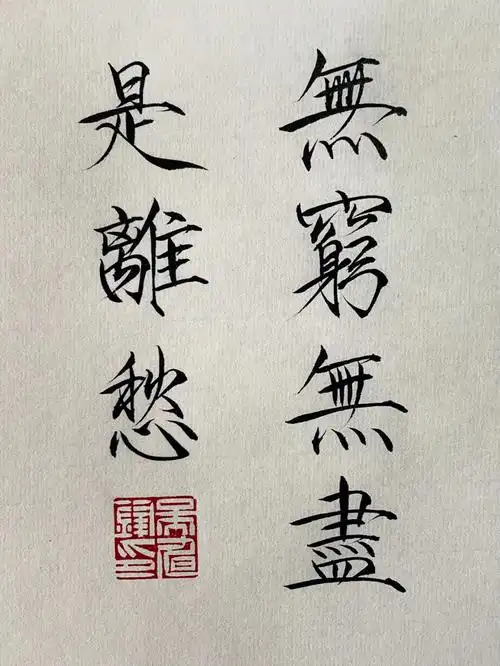 無窮無盡
是離愁